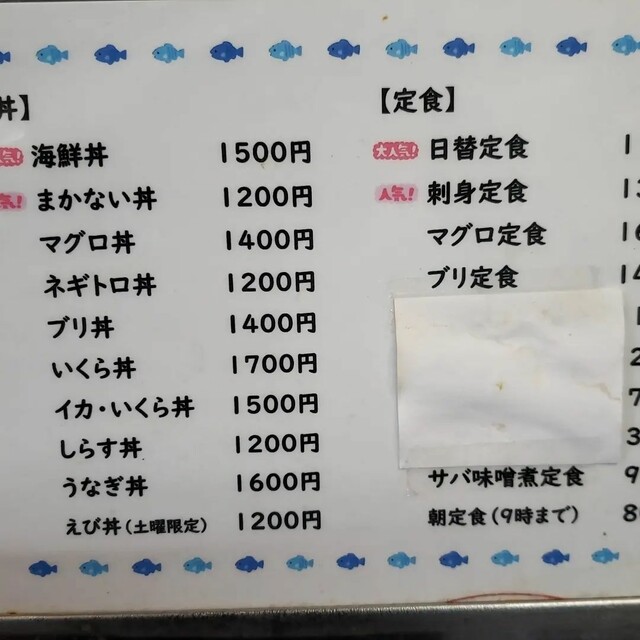 丼】
海鮮丼 1500円
まかない丼 1200円
マグロ丼 1400円
ネギトロ丼 1200円
ブリ丼 1400円
いくら丼 1700円
イカ・いくら丼 1500円
しらす丼 1200円
うなぎ丼 1600円
えび丼(土曜限定) 1200円
【定食】
大人気! 日替定食 1
人気! 刺身定食 13
マグロ定食 16
ブリ定食 14
1
2
7
3
サバ味噌煮定食 9
朝定食(9時まで) 8